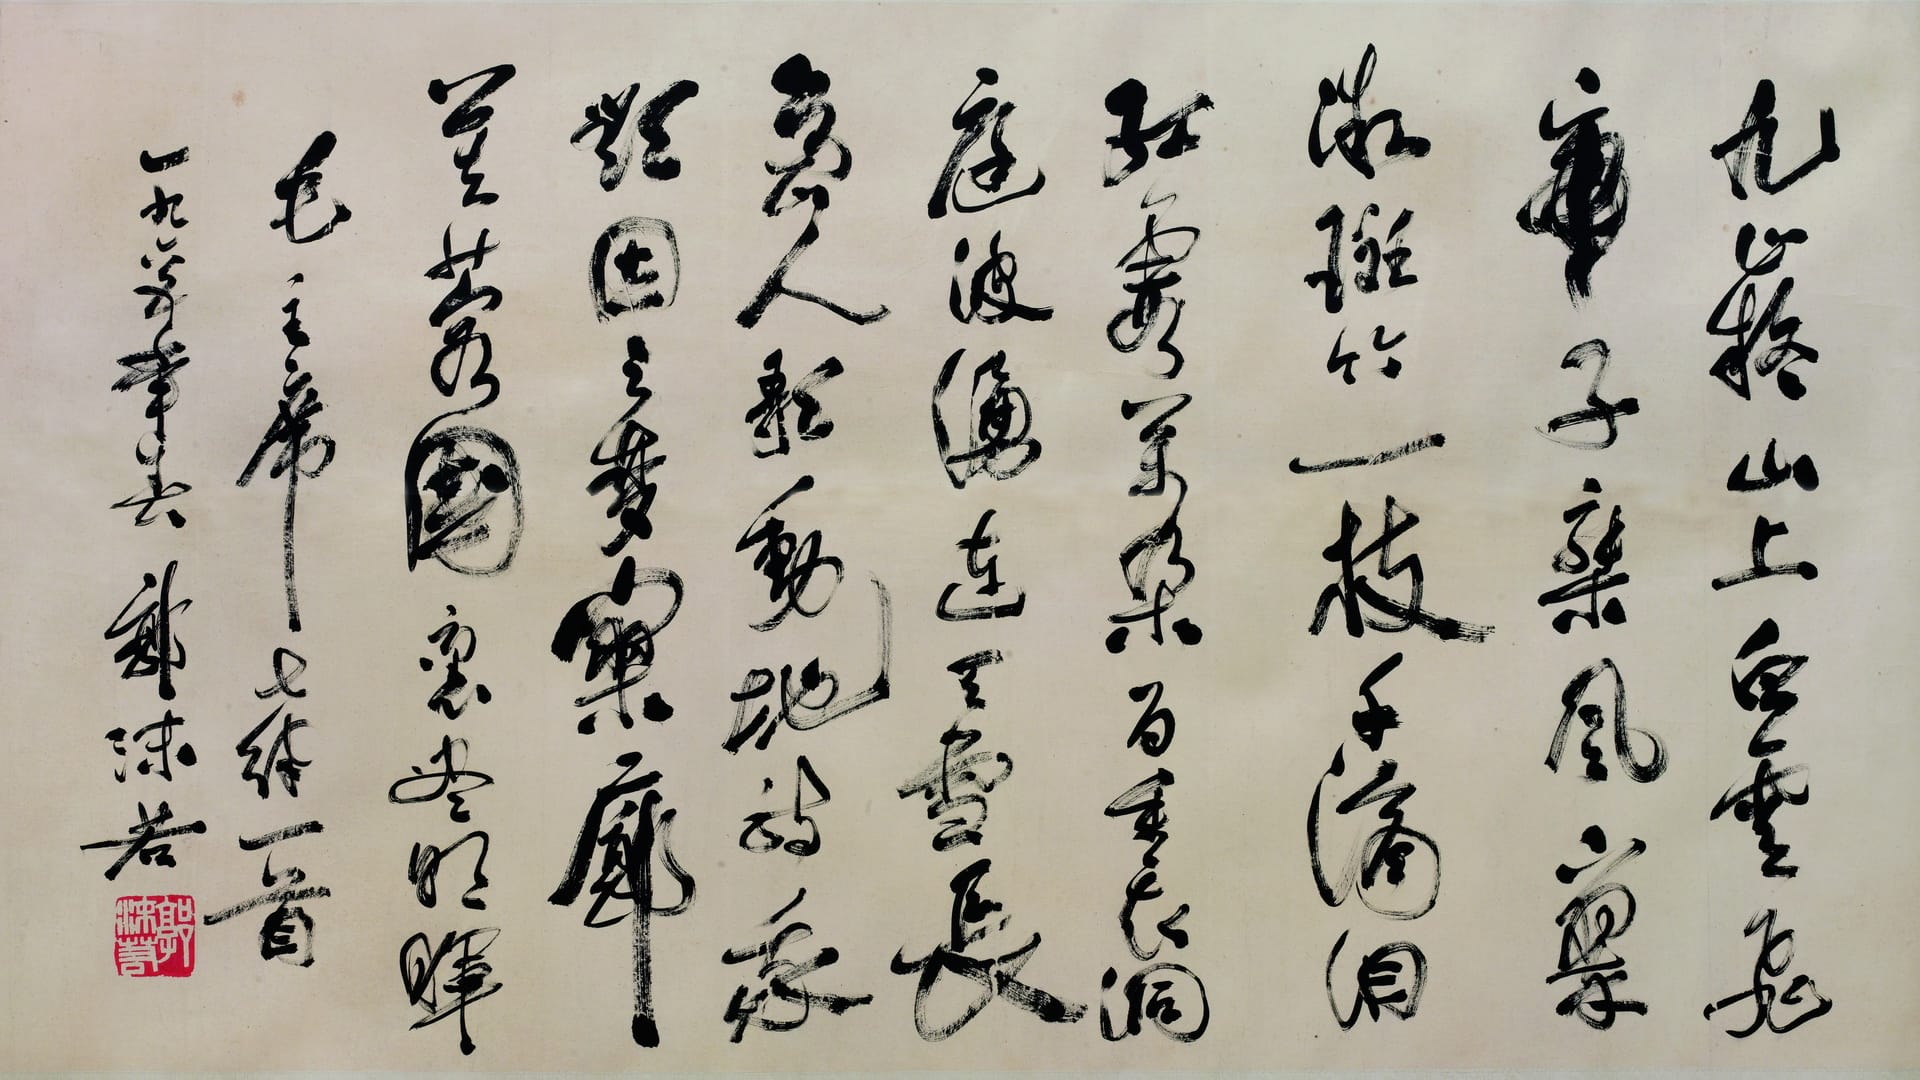 九嶷山上白雲飛
帝子乘風下翠
微斑竹一枝千滴淚
紅霞萬朵百重衣洞
庭波湧連天雪長
島人歌動地詩我
欲因之夢寥廓
芙蓉國裏盡朝暉
毛主席七律一首
一九六年春 郭沫若
郭沫若